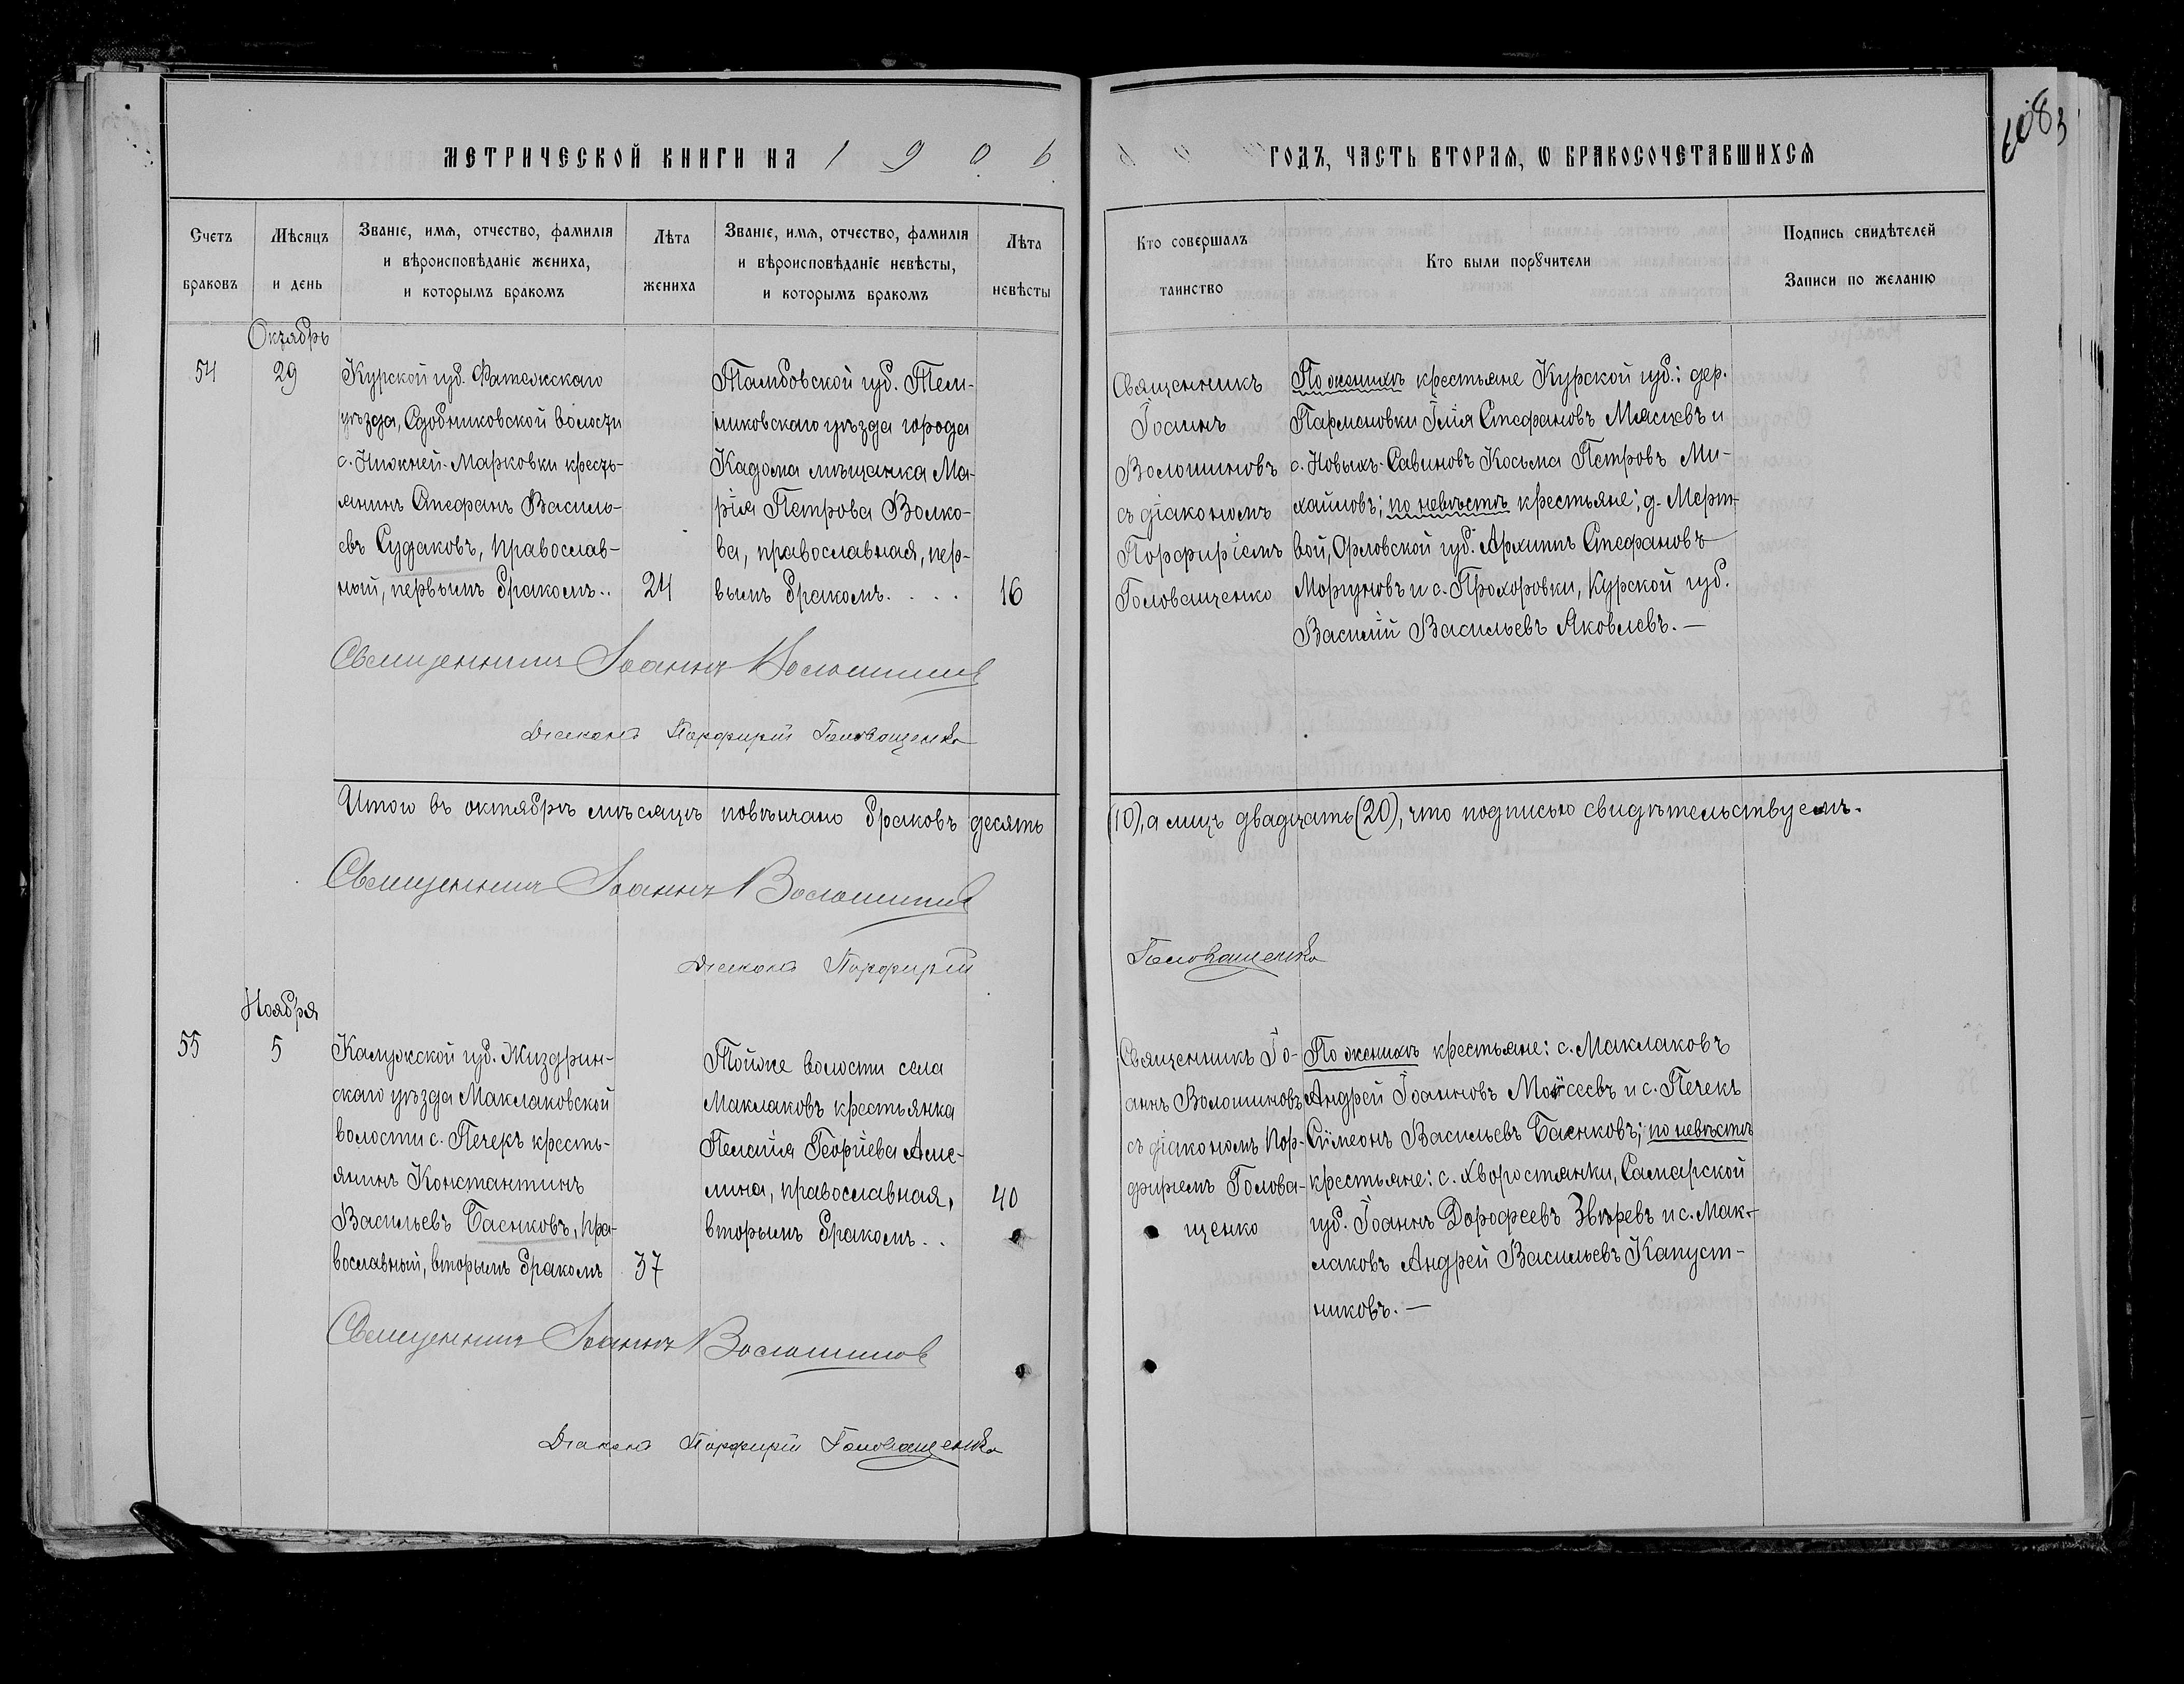 МЕТРИЧЕСКОЙ КНИГИ НА 1906
ГОДЪ, ЧАСТЬ ВТОРАЯ, Ѡ БРАКОСОЧЕТАВШИХСЯ
Счетъ браковъ
Мѣсяцъ и день
Званіе, имя, отчество, фамилія
и вѣроисповѣданіе жениха,
и которымъ бракомъ
Лѣта жениха
Званіе, имя, отчество, фамилія
и вѣроисповѣданіе невѣсты,
и которымъ бракомъ
Лѣта невѣсты
Кто совершалъ
таинство
Кто были порꙋчители
Подпись свидѣтелей
Записи по желанію
Октябрь
54
29
Курской губ. Фатежскаго
уѣзда, Сдобниковской волости
с. Нижней-Марковки кресть-
янинъ Стефанъ Василь-
евъ Судаковъ, православ-
ный, первымъ бракомъ..
24
Тамбовской губ. Тем-
никовскаго уѣзда города
Кадома мѣщанка Ма-
рія Петрова Волко-
ва, православная, пер-
вымъ бракомъ. . . .
16
Священникъ
Іоаннъ
Волошиновъ
съ діакономъ
Порфиріемъ
Головащенко
По женихѣ крестьяне Курской губ.: дер.
Парменовки Илія Стефановъ Мясцевъ и
с. Новыхъ-Савиновъ Косьма Петровъ Ми-
хайловъ; по невѣстѣ крестьяне; д. Мерт-
вой, Орловской губ. Архиппъ Стефановъ
Моргуновъ и с. Прохоровки, Курской губ.
Василій Васильевъ Яковлевъ. —
Священникъ Іоаннъ Волошиновъ
Діаконъ Порфирій Головащенко
Итого въ октябрѣ мѣсяцѣ повѣнчано браковъ десять
(10), а лицъ двадцать (20), что подписью свидѣтельствуемъ.
Священникъ Іоаннъ Волошиновъ
Діаконъ Порфирій
Головащенко
Ноября
55
5
Калужской губ. Жиздрин-
скаго уѣзда Маклаковской
волости с. Печекъ кресть-
янинъ Константинъ
Васильевъ Баенковъ, пра-
вославный, вторымъ бракомъ
37
Тойже волости села
Маклаковъ крестьянка
Пелагія Георгіева Аме-
лина, православная,
вторымъ бракомъ. .
40
Священникъ Іо-
аннъ Волошиновъ
съ діакономъ Пор-
фиріемъ Голова-
щенко
По женихѣ крестьяне: с. Маклаковъ
Андрей Іоанновъ Моѵсеевъ и с. Печекъ
Сѵмеонъ Васильевъ Баенковъ; по невѣстѣ
крестьяне: с. Хворостянки, Самарской
губ. Іоаннъ Дорофеевъ Звѣревъ и с. Мак-
лаковъ Андрей Васильевъ Капуст-
никовъ. —
Священникъ Іоаннъ Волошинов
Діаконъ Порфирій Головащенко